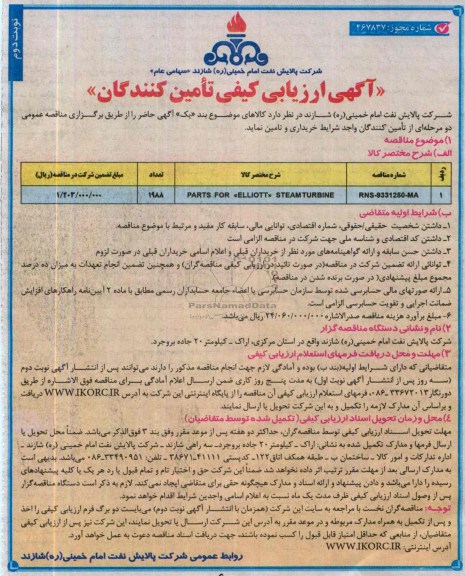 نوبت دوم
شماره مجوز: ۴۶۷۸۳۷
شرکت پالایش نفت امام خمینی(ره) شازند «سهامی عام»
«آگهی ارزیابی کیفی تأمین کنندگان»
شرکت پالایش نفت امام خمینی(ره) شازند در نظر دارد کالاهای موضوع بند «یک» آگهی حاضر را از طریق برگزاری مناقصه عمومی
دو مرحله‌ای از تأمین کنندگان واجد شرایط خریداری و تامین نماید.
۱) موضوع مناقصه
الف) شرح مختصر کالا
ردیف شماره مناقصه شرح مختصر کالا تعداد مبلغ تضمین شرکت در مناقصه(ریال)
۱ RNS-9331250-MA PARTS FOR «ELLIOTT» STEAM TURBINE ۱۹۸۸ ۱/۲۰۳/۰۰۰/۰۰۰
ب) شرایط اولیه متقاضی
۱ـ داشتن شخصیت حقیقی/حقوقی، شماره اقتصادی، توانایی مالی، سابقه کار مفید و مرتبط با موضوع مناقصه.
۲ـ داشتن کد اقتصادی و شناسه ملی جهت شرکت در مناقصه الزامی است
۳ـ داشتن حسن سابقه و ارائه گواهینامه‌های مورد نظر از خریداران قبلی و اعلام اسامی خریداران قبلی در صورت لزوم
۴ـ توانایی ارائه تضمین شرکت در مناقصه(در صورت تائید در ارزیابی کیفی مناقصه‌گران) و همچنین تضمین انجام تعهدات به میزان ده درصد
مجموع مبلغ پیشنهادی( در صورت برنده شدن در مناقصه)
۵ـ ارائه صورتهای مالی حسابرسی شده توسط سازمان حسابرسی یا اعضاء جامعه حسابداران رسمی مطابق با ماده ۲ آیین‌نامه راهکارهای افزایش
ضمانت اجرایی و تقویت حسابرسی الزامی است.
۶- مبلغ برآورد هزینه مناقصه صدرالاشاره ۲۴/۰۶۰/۰۰۰/۰۰۰ ریال می‌باشد.
ParsNamadData
۲) نام و نشانی دستگاه مناقصه گزار
شرکت پالایش نفت امام خمینی(ره) شازند واقع در استان مرکزی، اراک – کیلومتر ۲۰ جاده بروجرد.
۳) مهلت و محل دریافت فرمهای استعلام ارزیابی کیفی
متقاضیانی که دارای شرایط اولیه(بند ب) بوده و آمادگی لازم جهت انجام مناقصه مذکور را دارند می‌توانند پس از انتشار آگهی نوبت دوم
(سه روز پس از انتشار آگهی نوبت اول) به مدت پنج روز کاری ضمن ارسال اعلام آمادگی برای مناقصه فوق الاشاره از طریق
دورنگار ۳۳۶۷۲۰۱۳-۰۸۶، فرمهای استعلام ارزیابی کیفی آن مناقصه را از پایگاه اینترنتی این شرکت به آدرس WWW.IKORC.IR دریافت
و براساس آن مدارک لازمه را تکمیل و به این شرکت تحویل یا ارسال نمایند.
۴) محل و زمان تحویل اسناد ارزیابی کیفی(تکمیل شده توسط متقاضیان)
مهلت تحویل اسناد ارزیابی کیفی توسط مناقصه‌گران، حداکثر دو هفته پس از موعد مقرر وفق بند ۳ فوق‌الذکر می‌باشد. ضمناً محل تحویل یا
ارسال فرمها و مدارک تکمیل شده به نشانی: اراک – کیلومتر ۲۰ جاده بروجرد– سه راهی شازند – شرکت پالایش نفت امام خمینی (ره) شازند –
اداره تدارکات و امور کالا – ساختمان ب – طبقه همکف اتاق ۱۲۲– کدپستی ۳۸۶۷۱۴۱۱۱۱ – تلفن: ۳۳۴۹۰۹۵۱-۰۸۶ می‌باشد. بدیهی است
به مدارک ارسالی بعد از مهلت مقرر ترتیب اثر داده نخواهد شد ضمناً این شرکت حق و اختیار تام و تمام قبول یا رد هر یک یا کلیه پیشنهادهای
رسیده را دارا می‌باشد و دادن پیشنهاد و ارائه اسناد و مدارک هیچگونه حقی برای متقاضی ایجاد نمی‌کند. لازم به ذکر است دستگاه مناقصه‌گزار
پس از وصول اسناد ارزیابی کیفی ظرف مدت یک ماه نسبت به اعلام اسامی واجدین شرایط اقدام خواهد نمود.
توجه: مناقصه‌گران نخست با مراجعه به سایت این شرکت (همزمان با انتشار آگهی نوبت دوم) می‌بایست دو برگ فرم ارزیابی کیفی را اخذ
و پس از تکمیل به همراه مدارک مربوطه و در موعد مقرر به آدرس این شرکت ارسال یا تحویل نمایند، این شرکت نیز پس از ارزیابی کیفی
متقاضیان، از منابعی که حداقل امتیاز قابل قبول را کسب نموده باشند، جهت دریافت اسناد مناقصه دعوت به عمل خواهد آورد.
آدرس اینترنتی: WWW.IKORC.IR
روابط عمومی شرکت پالایش نفت امام خمینی(ره) شازند